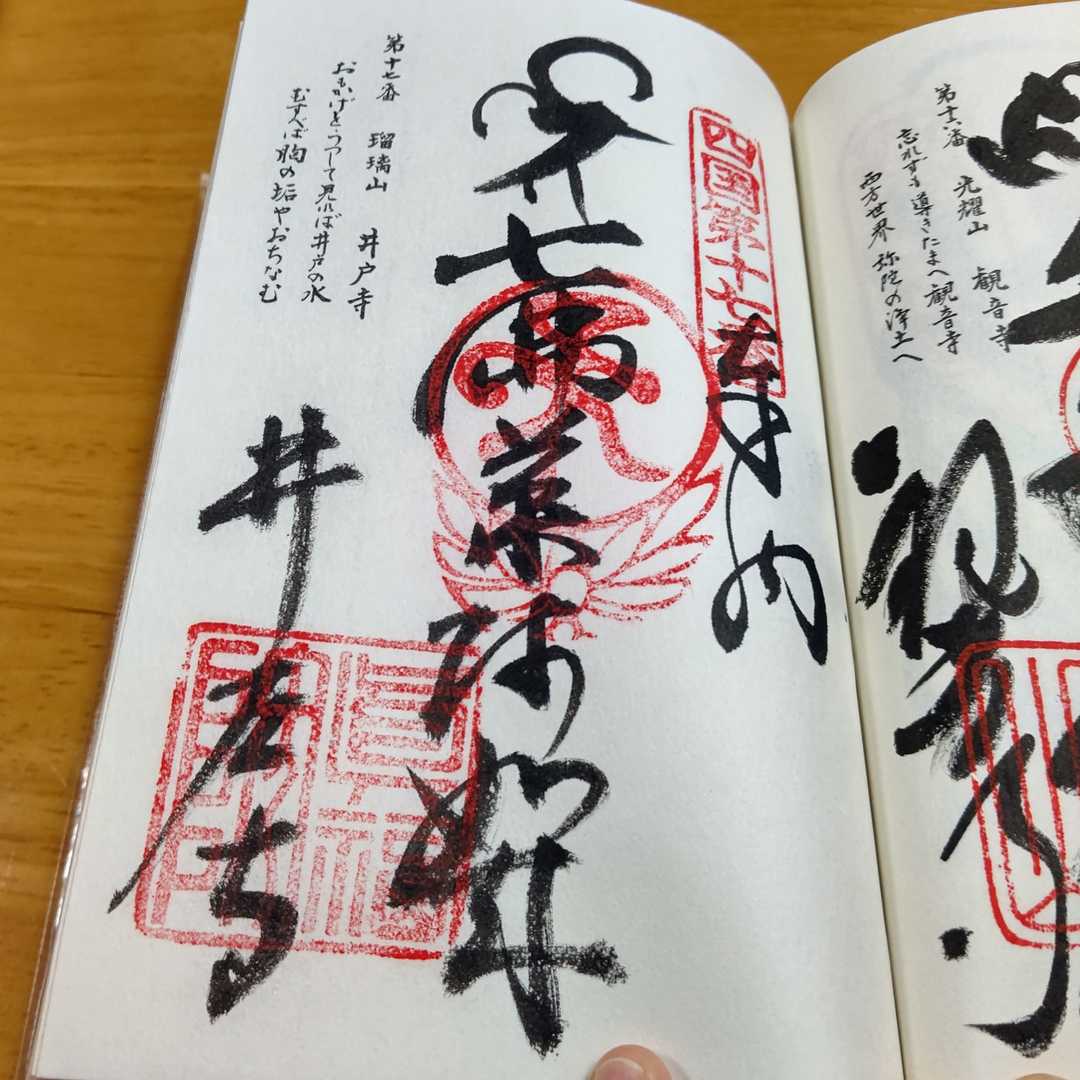 第十六番 光耀山 観音寺
忘れずも導きたまへ観音寺
西方世界 弥陀の浄土へ
四国第十七番
奉納
七佛薬師如来
井戸寺
第十七番 瑠璃山 井戸寺
おもかげをうつして見れば井戸の水
むすべば胸の垢やおちなむ